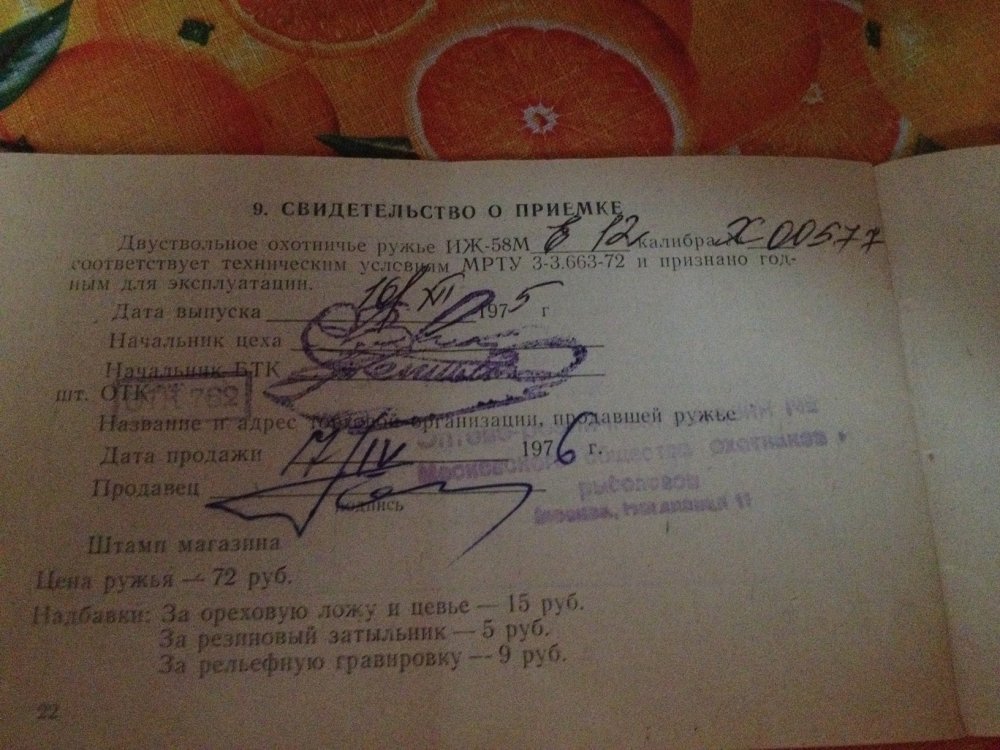 9. СВИДЕТЕЛЬСТВО О ПРИЕМКЕ
Двуствольное охотничье ружье ИЖ-58М 12 калибра Х 00577
соответствует техническим условиям МРТУ 3-3.663-72 и признано год-
ным для эксплуатации.
Дата выпуска 16/XII 1975 г
Начальник цеха
Начальник БТК
шт. ОТК
Название и адрес торговой организации, продавшей ружье
Дата продажи 17/IV 1976 г.
Московского общества охотников
Продавец
рыболовов
подпись
Москва,
Штамп магазина
Цена ружья — 72 руб.
Надбавки: За ореховую ложу и цевье — 15 руб.
За резиновый затыльник — 5 руб.
За рельефную гравировку — 9 руб.
22